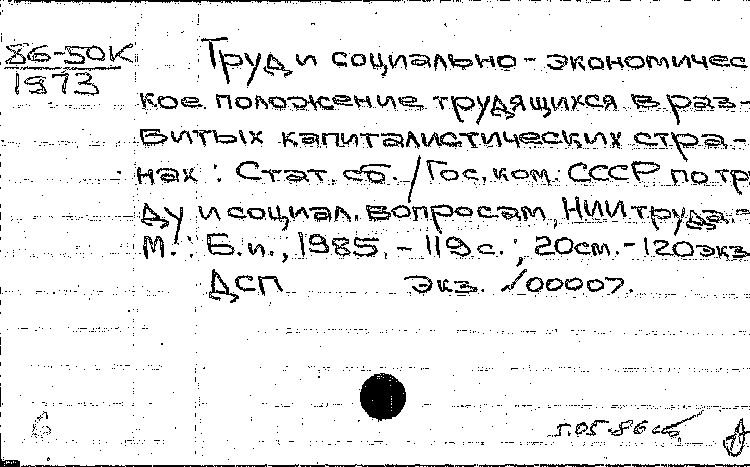 86-50К
1973
Труд и социально-экономичес
кое положение трудящихся в раз-
витых капиталистических стра-
нах : Стат. сб. / Гос. ком. СССР по тр
ду и социал. вопросам, НИИ труда.-
М. : Б.и., 1985. - 119 с. ; 20 см. - 120 экз
ДСП Экз. √00007.
6